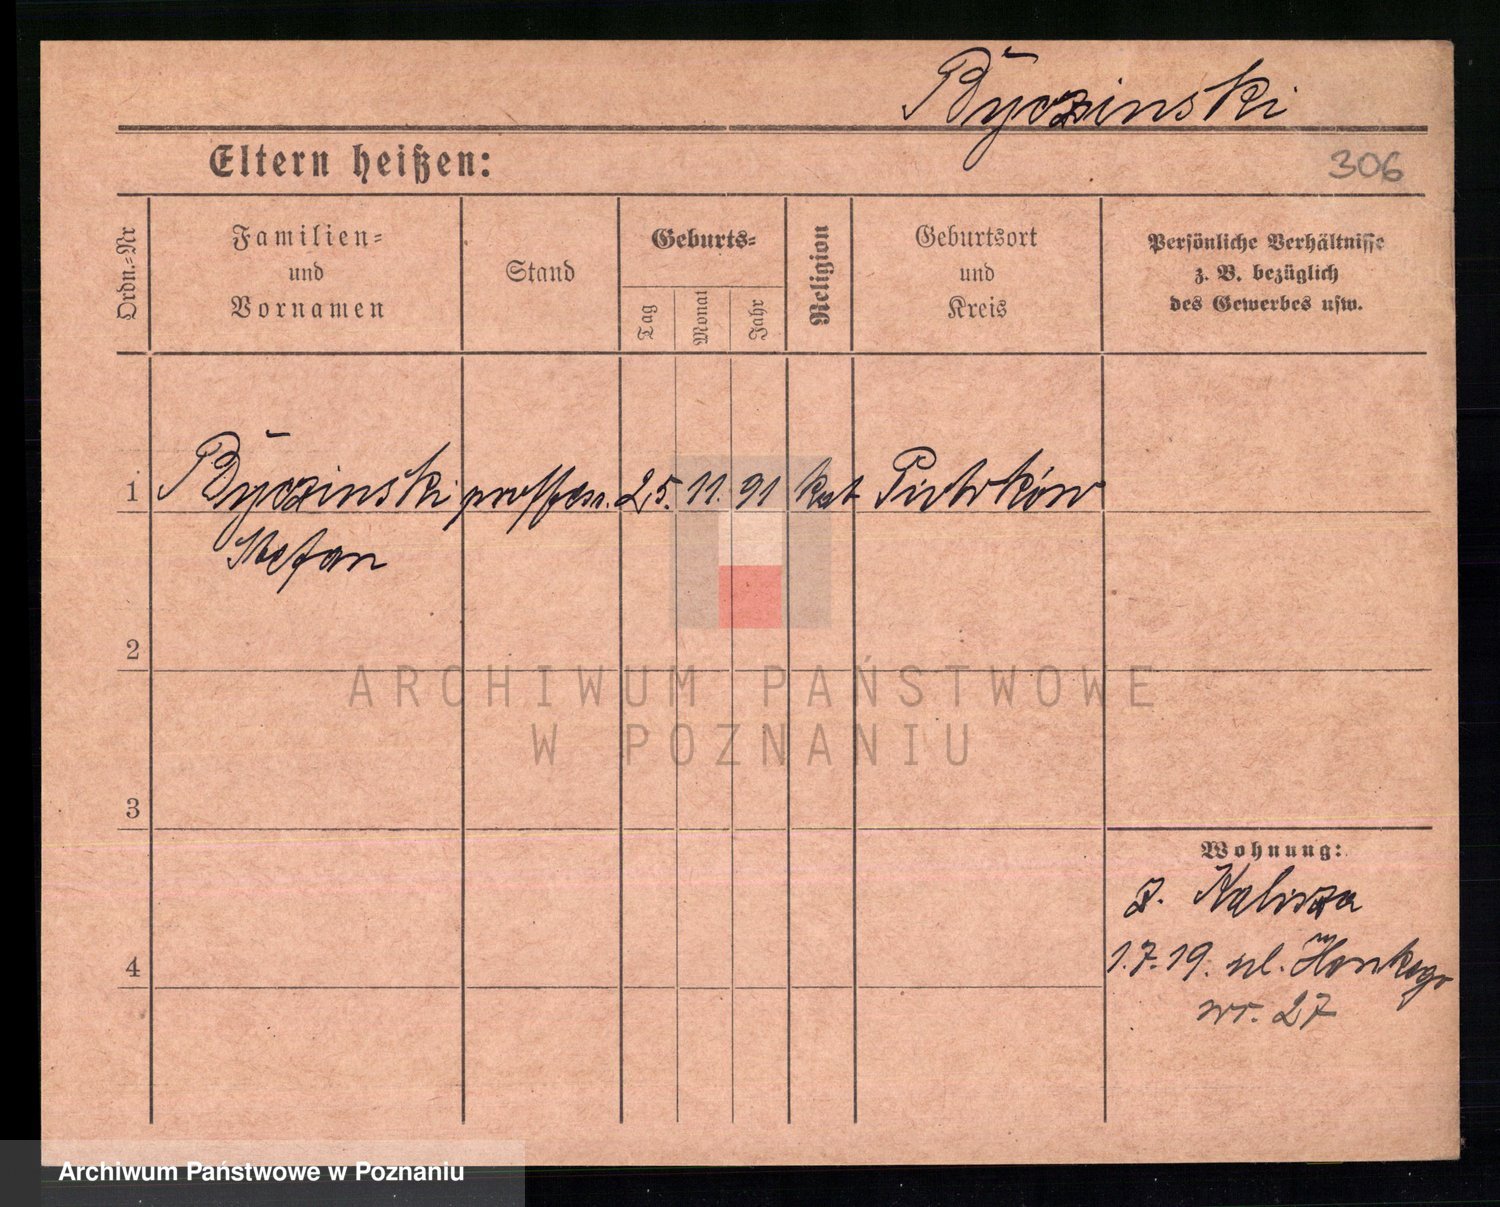 Byczinski
Eltern heißen:
306
Ordn.-Nr
Familien-
und
Vornamen
Stand
Geburts-
Tag
Monat
Jahr
Religion
Geburtsort
und
Kreis
Persönliche Verhältnisse
z. B. bezüglich
des Gewerbes usw.
1 Byczinski 25. 11. 91 kat Piotrków
Stefan
2
ARCHIWUM PAŃSTWOWE
W POZNANIU
3
Wohnung:
z. Kalisza
4
1.7.19. ul.
nr. 27
Archiwum Państwowe w Poznaniu